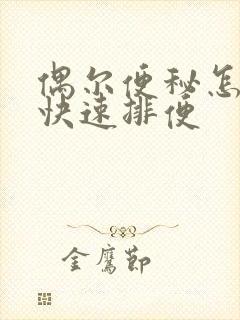 偶尔便秘怎
快速排便
金鹰节